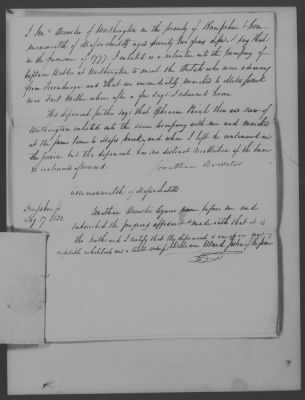 I Jona Brewster of Worthington in the County of Hampshire & Com
monwealth of Massachusetts aged seventy two years depose & say that
in the summer of 1777 I enlisted as a volunteer into the Company of
Captain Webber at Worthington to meet the British who were advancing
from Ticonderoga and that we immediately marched to Moses Creek
near Fort Miller where after a few days I returned home
The deponent further says that Ephraim Parish then was now of
Worthington enlisted into the same Company with me and marched
at the same time to Moses Creek, and when I left he continued in
the service but this deponent has no distinct recollection of the time
he continued afterward.
Jonathan Brewster
Commonwealth of Massachusetts
Hampshire ss
1832
Jonathan Brewster came before me and
subscribed the foregoing affidavit & made oath that it is
the truth and I certify that the deponent is
William Ward Justice of the peace